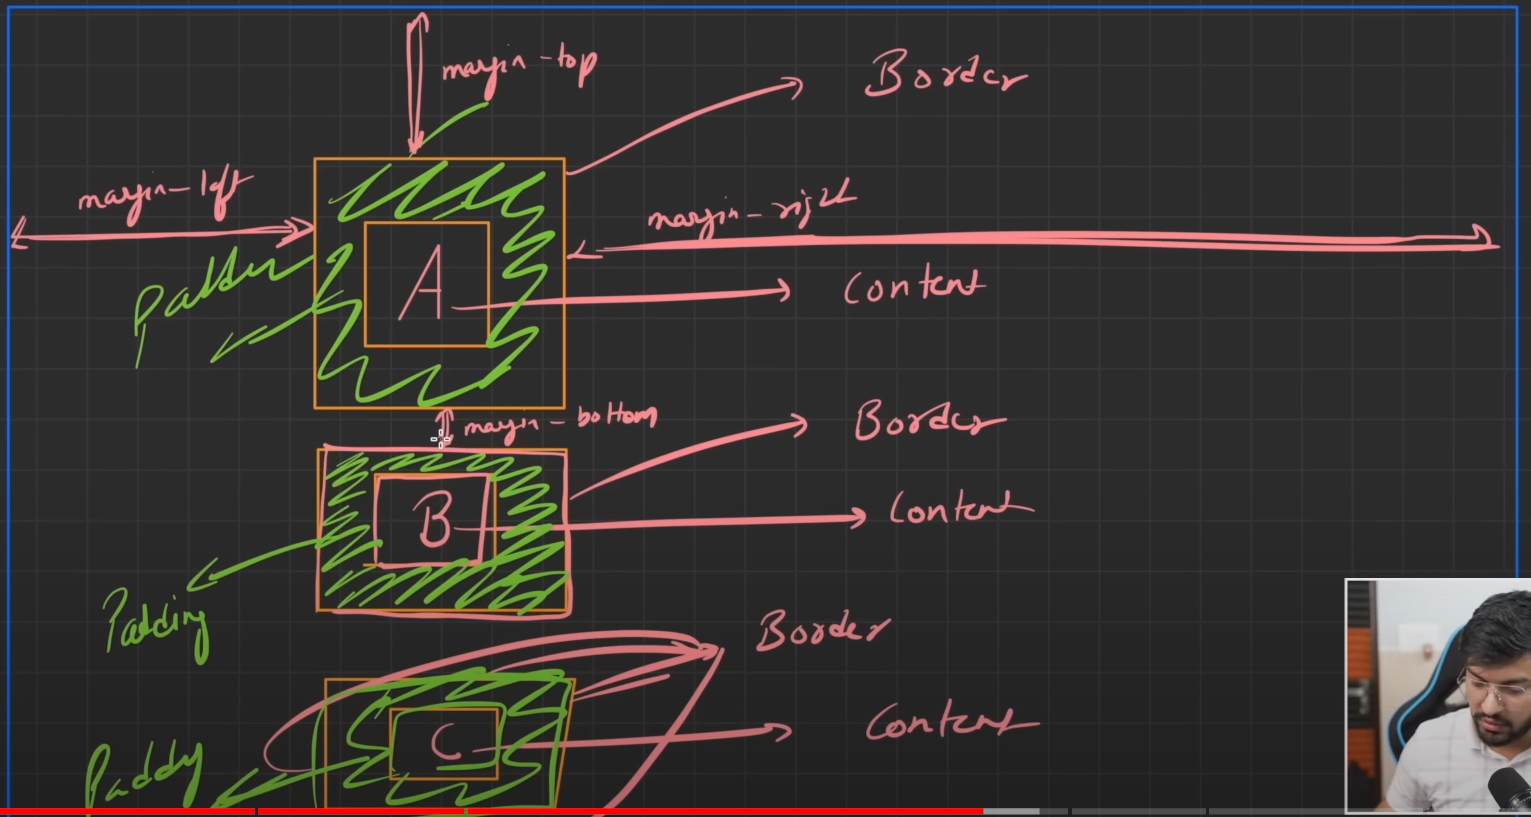 margin-top
Border
margin-left
margin-right
Padding
A
Content
margin-bottom
Border
B
Content
Padding
Border
C
Content
Padding